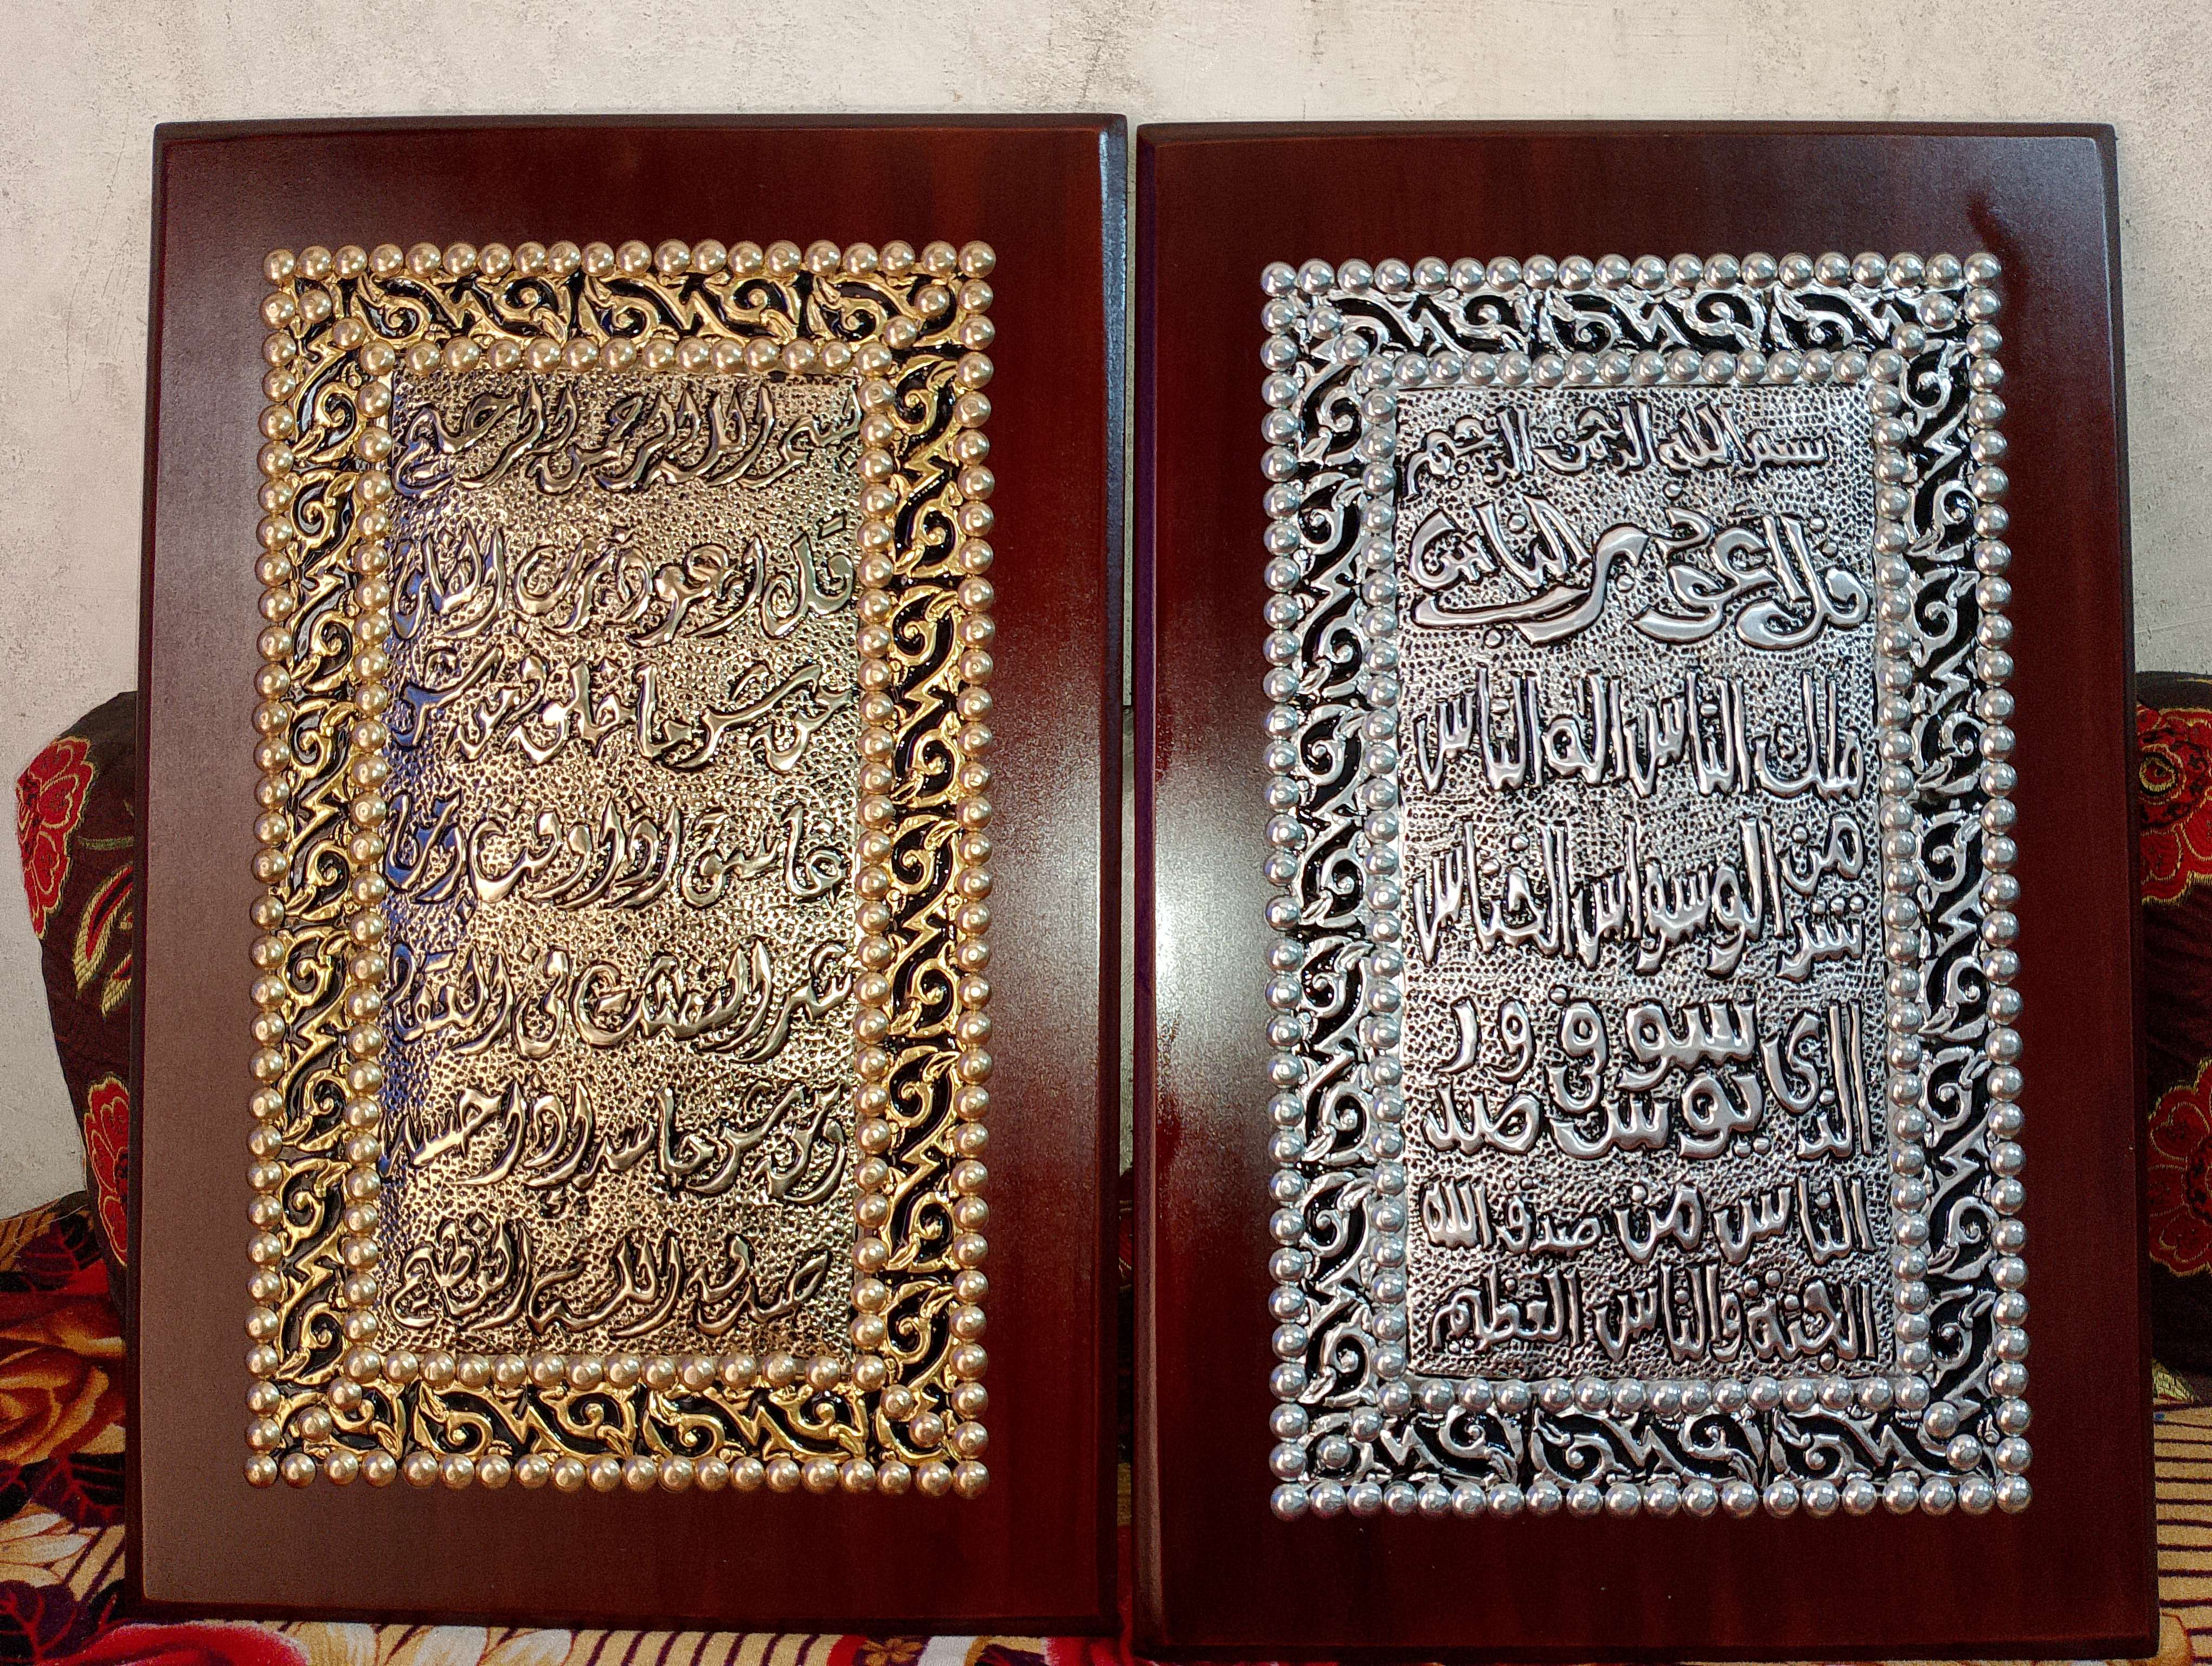 بسم الله الرحمن الرحيم
قل اعوذ برب الفلق
من شر ما خلق ومن شر
غاسق اذا وقب ومن
شر النفثت في العقد
ومن شر حاسد اذا حسد
صدق الله العظيم
بسم الله الرحمن الرحيم
قل اعوذ برب الناس
ملك الناس اله الناس
من شر الوسواس الخناس
الذى يوسوس فى صدور
الناس من صدق الله
الجنة والناس العظيم